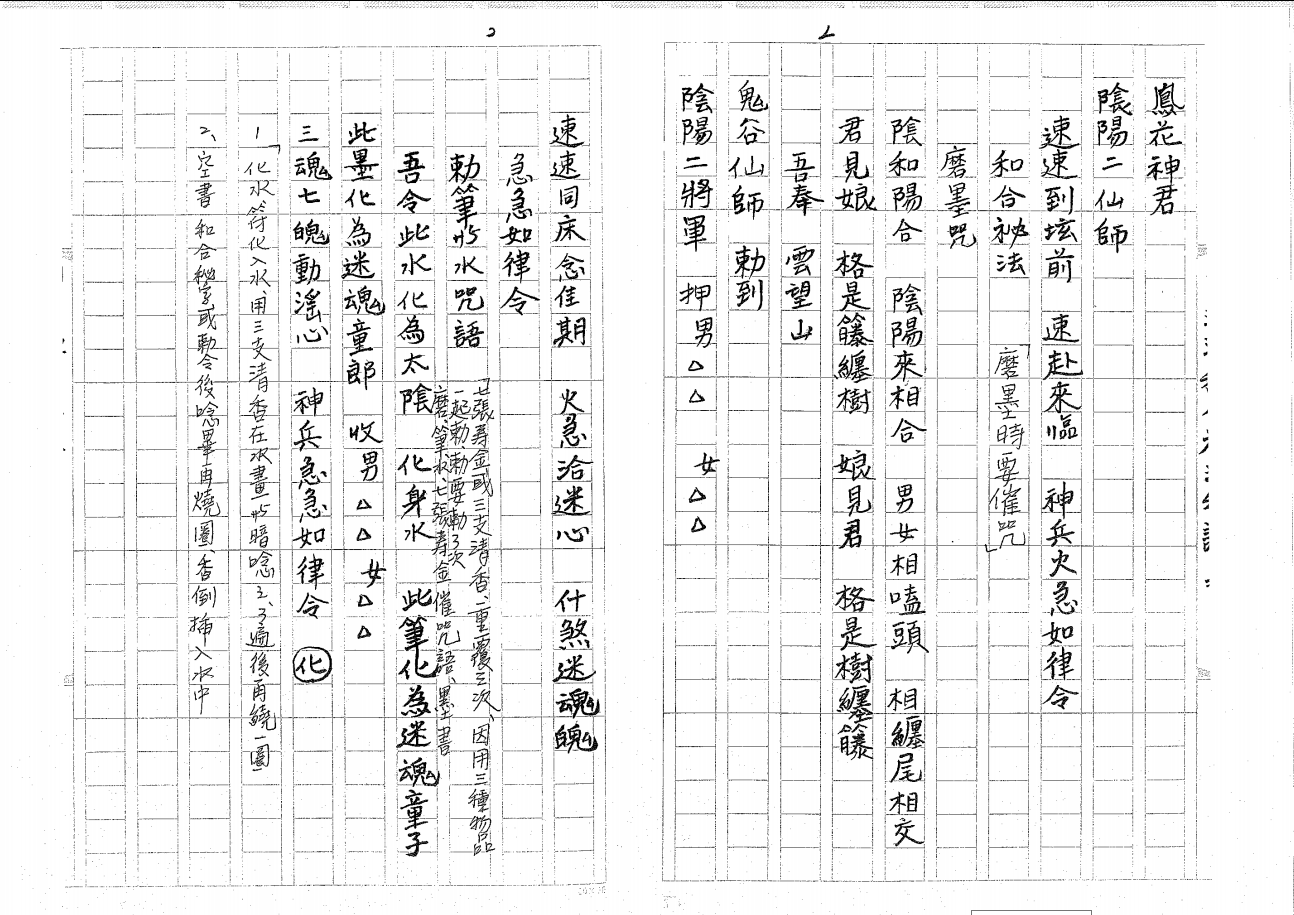 鳳花神君
陰陽二仙師
速速到坛前　速赴來臨　神兵火急如律令
和合祕法　「磨墨時要催咒」
磨墨咒
陰和陽合　陰陽來相合　男女相嗑頭　相纏尾相交
君見娘　格是籐纏樹　娘見君　格是樹纏籐
吾奉　雲望山
鬼谷仙師　勅到
陰陽二將軍　押男△△　女△△
速速同床念佳期　火急洽迷心　什煞迷魂魄
急急如律令
勅筆水咒語
「七張寿金或三支清香、重覆三次、因用三種物品
一起勅、勅要勅3次
磨筆水、七張壽金催咒語、墨書
吾令此水化為太陰　化身水　此筆化為迷魂童子
此墨化為迷魂童郎　收男△△女△△
三魂七魄動滛心　神兵急急如律令　化
1「化水符化入水、用三支清香在水畫 暗唸 3遍後再繞一圈」
2、空書 和合祕字或勅令後唸畢再燒圈、香倒插入水中